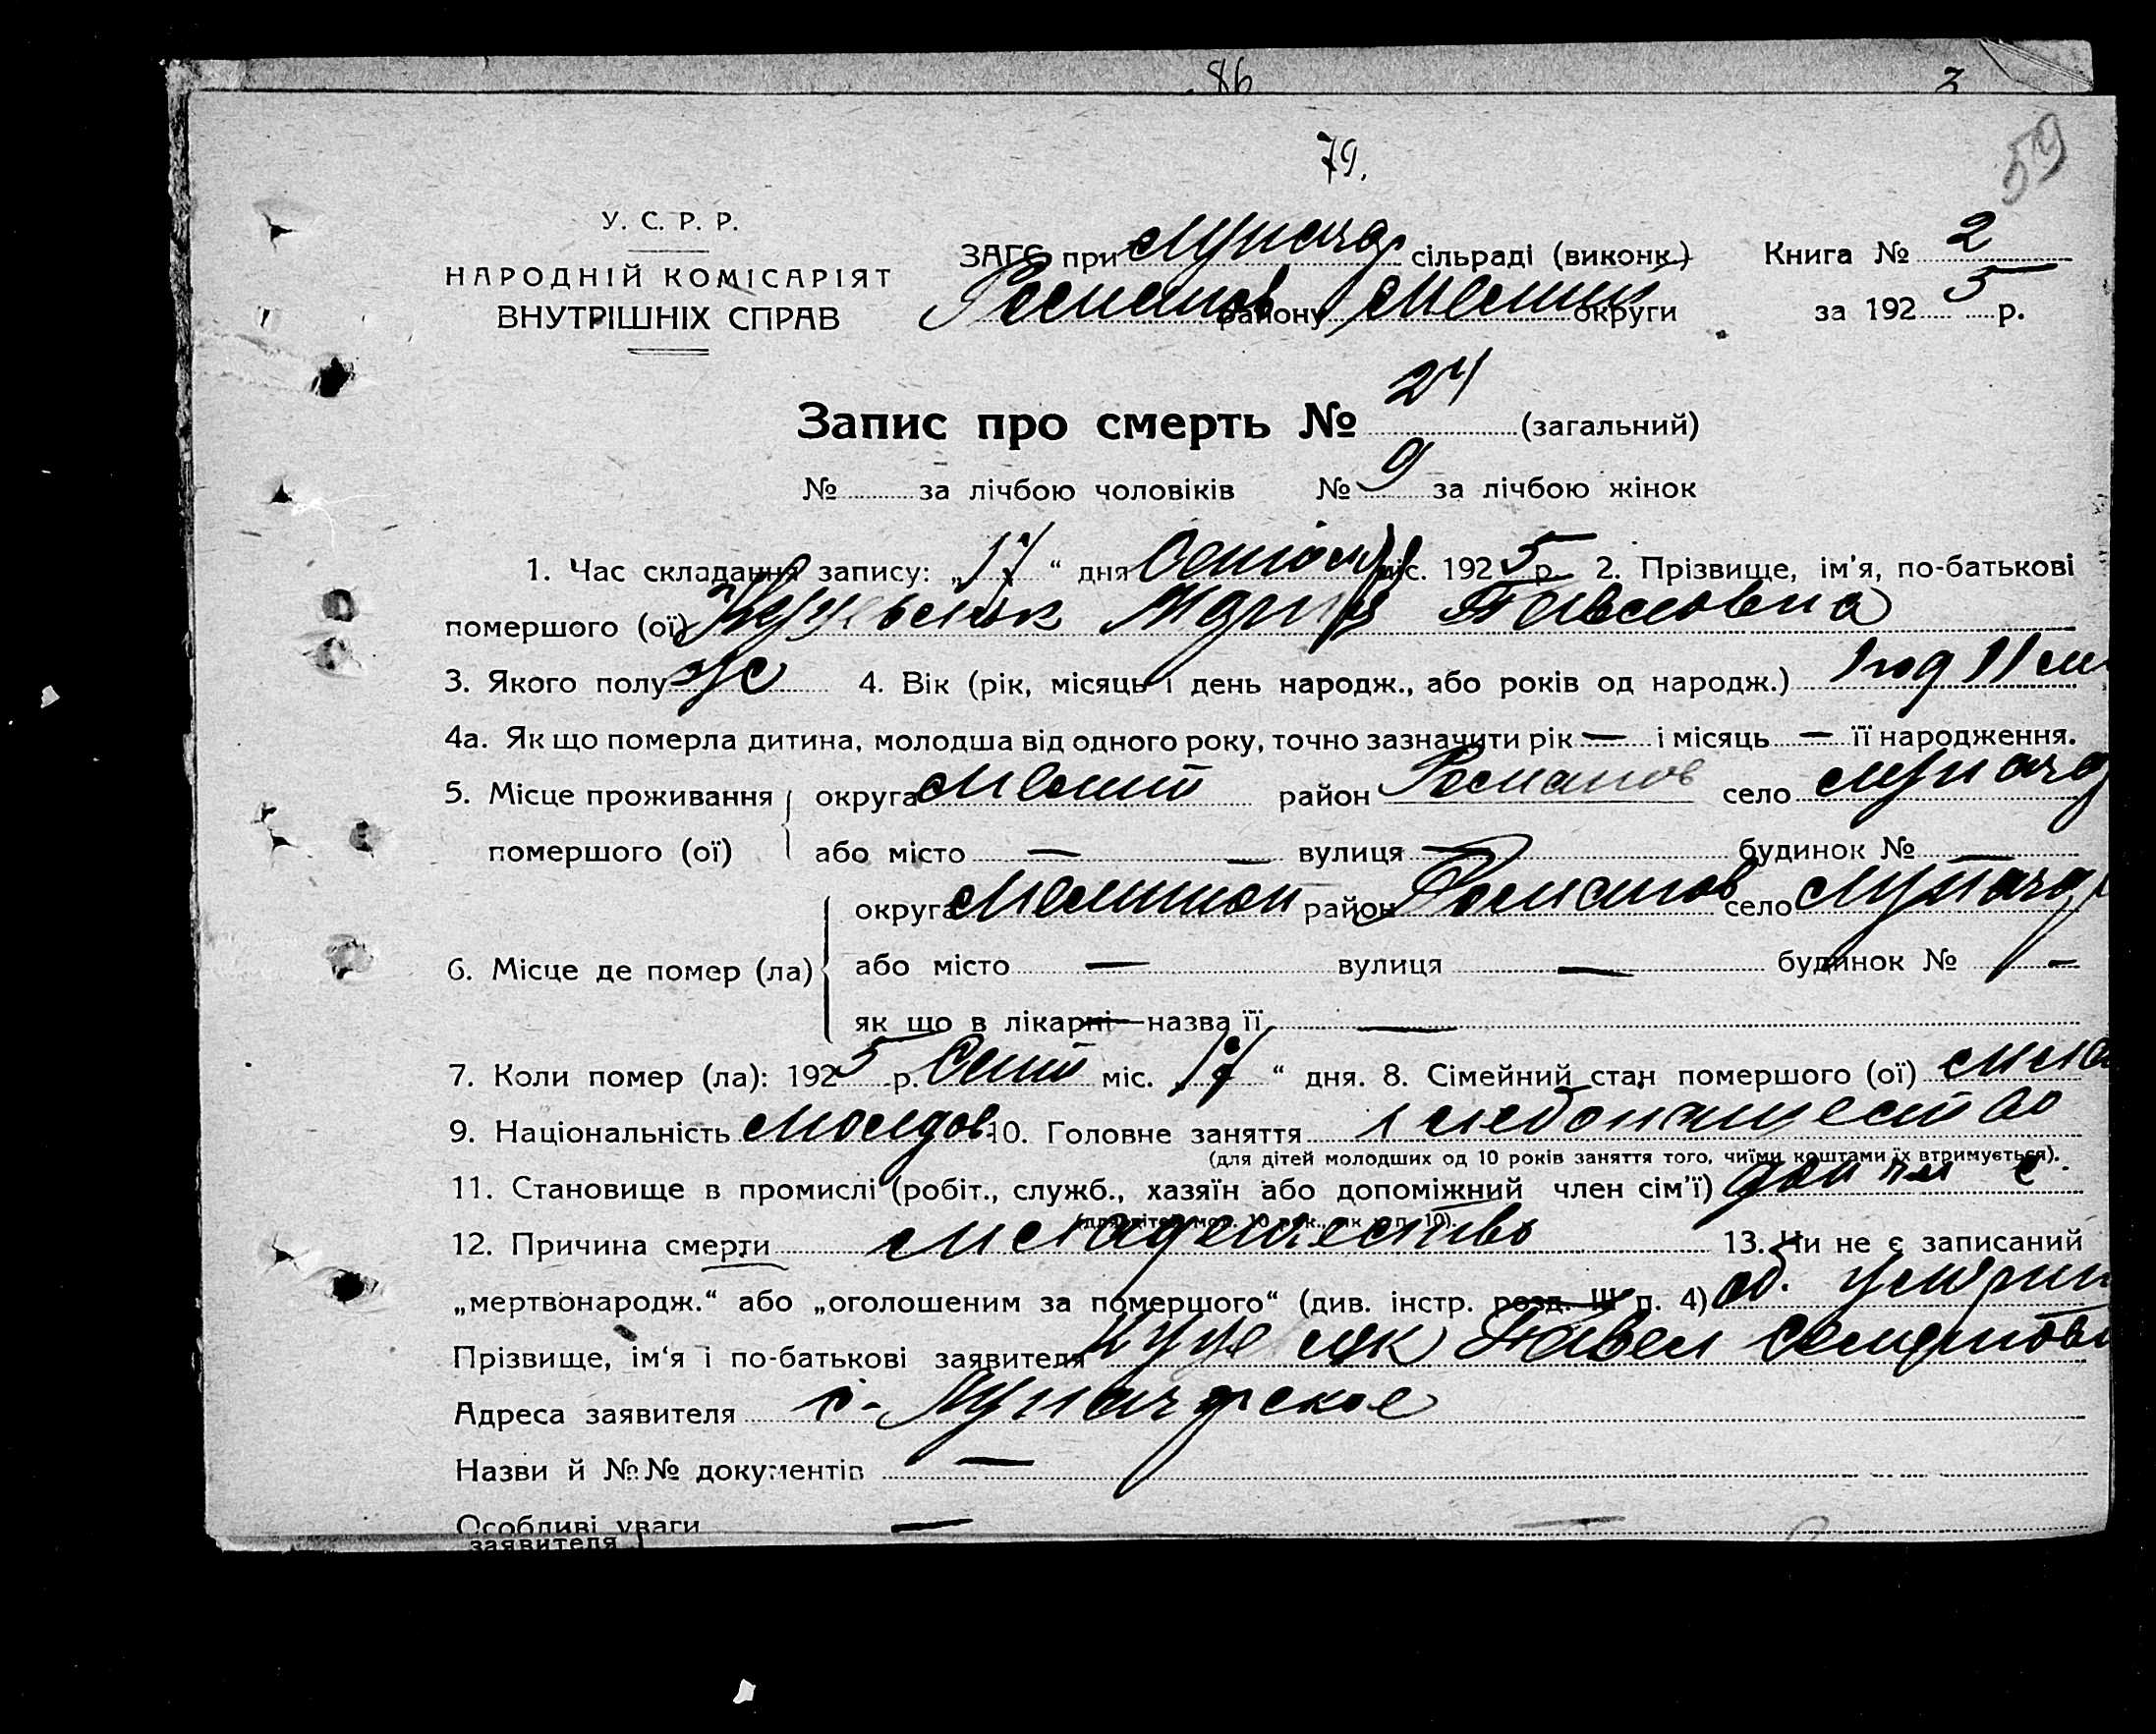 86
3
79.
59
У. С. Р. Р.
НАРОДНІЙ КОМІСАРІЯТ
ВНУТРІШНІХ СПРАВ
ЗАГС при Лунача сільраді (виконк.) Книга № 2
Романов району Мелит округи за 1925 р.
Запис про смерть № 24 (загальний)
№ за лічбою чоловіків № 9 за лічбою жінок
1. Час складання запису: „17“ дня міс. 1925 р. 2. Прізвище, ім'я, по-батькові
помершого (ої) Мария Павловна
3. Якого полу ж 4. Вік (рік, місяць і день народж., або років од народж.) 1 год 11 м
4а. Як що померла дитина, молодша від одного року, точно зазначити рік — і місяць — її народження.
5. Місце проживання округа Мелит район Романов село Луначар
помершого (ої) або місто — — вулиця — будинок № —
округа Мелитоп район Романов село Луначар
6. Місце де помер (ла) або місто — вулиця — будинок № —
як що в лікарні—назва її —
7. Коли помер (ла): 1925 р. Сент міс. „17“ дня. 8. Сімейний стан помершого (ої) мла
9. Національність Молдов 10. Головне заняття хлебопашество
(для дітей молодших од 10 років заняття того, чиїми коштами їх втримується).
11. Становище в промислі (робіт., служб., хазяїн або допоміжний член сім'ї) доп чл с
(для дітей мол. 10 рок., як в п. 10).
12. Причина смерти младенчество 13. Чи не є записаний
„мертвонародж.“ або „оголошеним за помершого“ (див. інстр. розд. III п. 4)
Прізвище, ім'я і по-батькові заявителя Павел
Адреса заявителя с. Луначарское
Назви й №№ документів —
Особливі уваги —
заявителя